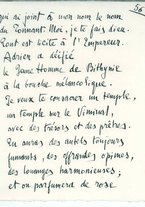 56
qui ai joint à mon nom le nom
du Tonnant. Moi, je te fais dieu.
Tout est licite à l'Empereur.
Adrien a déifié
le Jeune Homme de Bithynie
à la bouche mélancolique.
Je veux te consacrer un temple,
un temple sur le Viminal,
avec des trésors et des prêtres.
Tu auras des autels toujours
fumants, des offrandes opimes,
des louanges harmonieuses ;
et on parfumera de rose